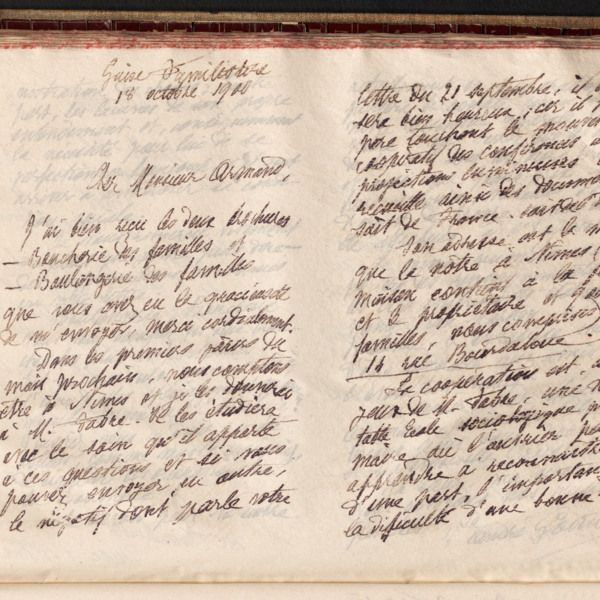 Guise Familistère
18 octobre 1900
Cher Monsieur Armand,
J'ai bien reçu les deux brochures
— Boucherie des familles et
— Boulangerie des familles
que vous avez eu la gracieuseté
de m'envoyer, merci cordialement.
Dans les premiers jours de
mois prochain, nous comptons
être à Nîmes et je les donnerai
à M. Fabre. Il les étudiera
avec le soin qu'il apporte
à ces questions et si vous
pouvez envoyer en outre,
le négatif dont parle votre
lettre du 21 septembre, il
sera bien heureux ; car il
pour touchant le mouvement
coopératif des conférences
projections lumineuses
recueille ainsi des documents
soit de France, soit de
Son adresse est la
que la nôtre à Nîmes,
maison contient à la
et le propriétaire et
familles, nous comprises
14 rue Bourdaloue.
La coopération est, a
yeux de M. Fabre, une
table École sociologique
mave où l'ouvrier
apprendre à reconnaître
d'une part, l'importance
la difficulté d'une bonne